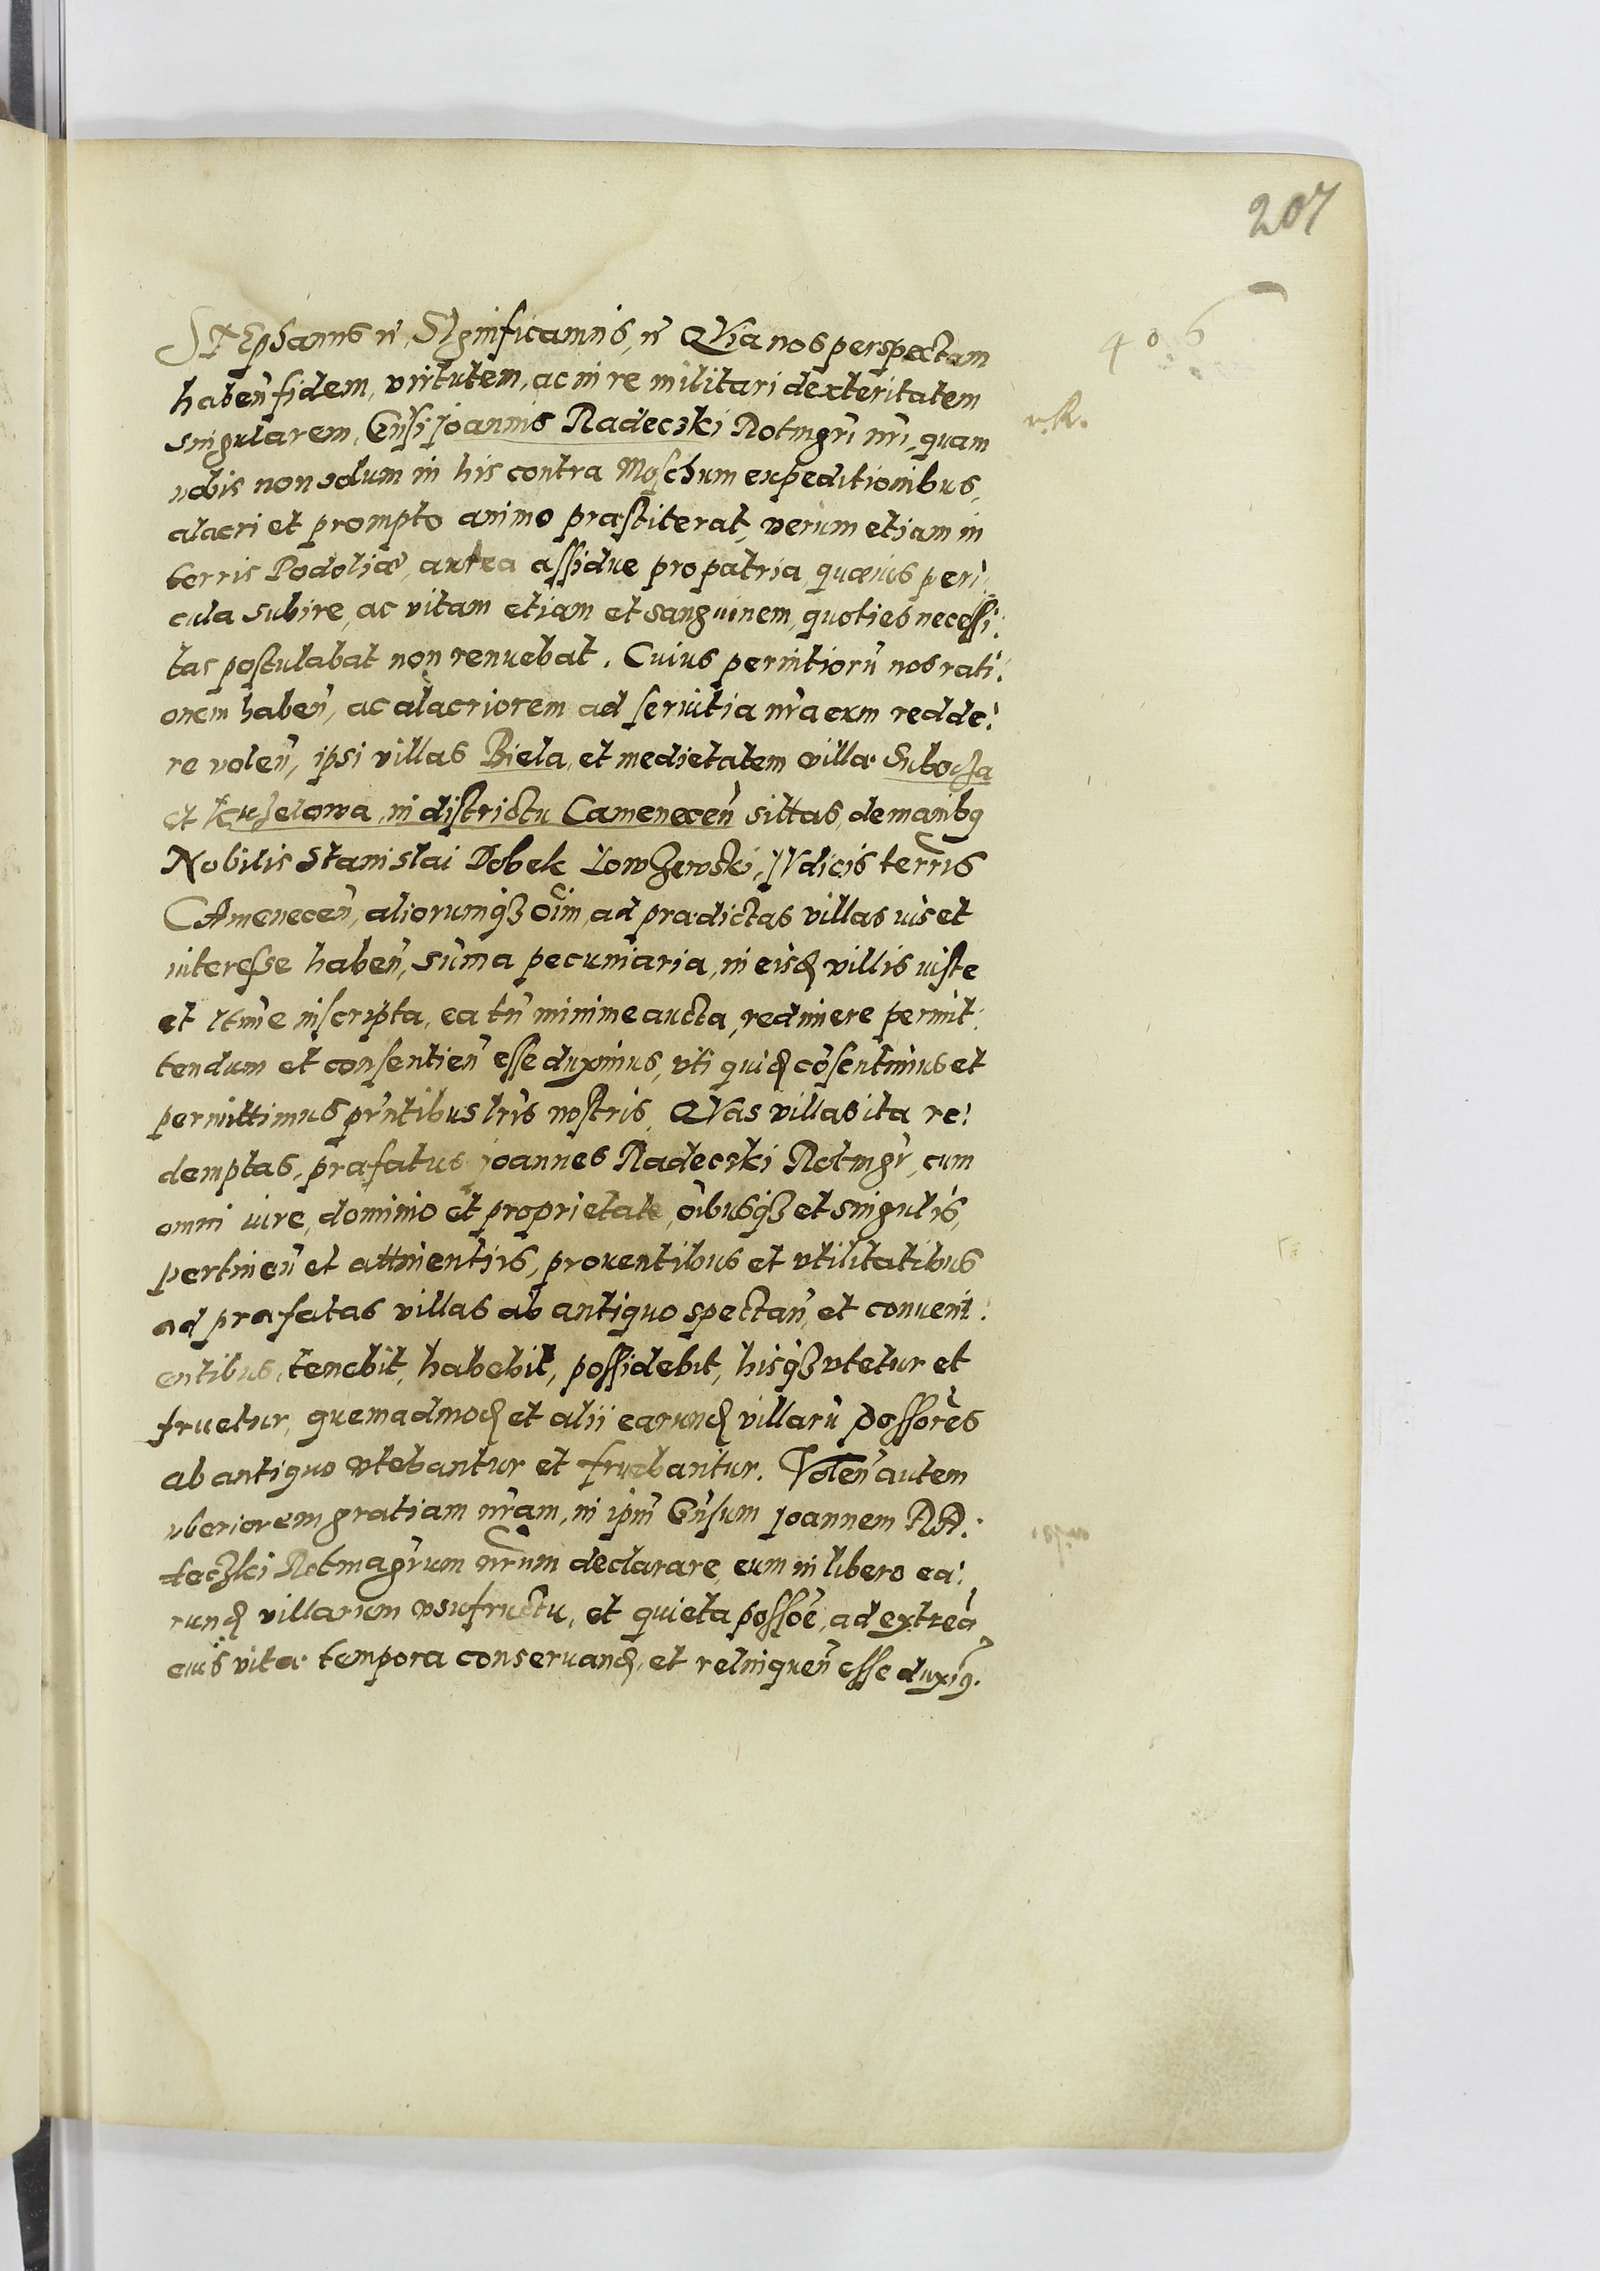 207
406
STEphanus rͤ, SIgnificamus, rͤ QVia nos perspectam
habeñ fidem, virtutem, ac in re militari dexteritatem
singularem, Gñsi Joannis Radecski Rotmgr̃i nr̃i, quam
nobis non solum in his contra Moschum expeditionibus,
alacri et prompto animo præstiterat, verum etiam in
terris Podoliæ, antea assidue pro patria, quæuis peri:
cula subire, ac vitam etiam et sanguinem, quoties necessi:
tas postulabat non renuebat. Cuius permitiorũ nos rati:
onem habeñ, ac alacriorem ad seruitia nr̃a eum redde:
re voleñ, ipsi villas Biela, et medietatem villæ Subocza
et Kuzelowa, in districtu Cameneceñ sittas, de manibꝫ
Nobilis Stanislai Dobek Lowczewski, JVdicis terris
CAmeneceñ, aliorumqꝫ oĩm, ad prædictas villas ius et
interesse habeñ, sũma pecuniaria, in eisd villis iuste
et ltĩme inscripta, ea tñ minime aucta, redimere permit:
tendum et consentieñ esse duximus, vti quid cõsentimus et
permittimus pñtibus lr̃is nostris, QVas villas ita re:
demptas, præfatus Joannes Radecski Rotmgr̃, cum
omni iure, dominio et proprietate, oĩbusqꝫ et singulis,
pertineñ et attinentiis, prouentibus et vtilitatibus
ad præfatas villas ab antiquo spectañ, et conueni:
entibus, tenebit, habebit, possidebit, hisqꝫ vtetur et
fruetur, quemadmod et alii earund villarũ possores
ab antiquo vtebantur et fruebantur. Voleñ autem
vberiorem gratiam nr̃am, in ipm̃ Gñsum Joannem RA:
teczki Rotmagr̃um nr̃um declarare, eum in libero ea:
rund villarum vsufructu, et quieta possoẽ, ad extreã
eius vitæ tempora conseruand, et relinqueñ esse duximꝫ.